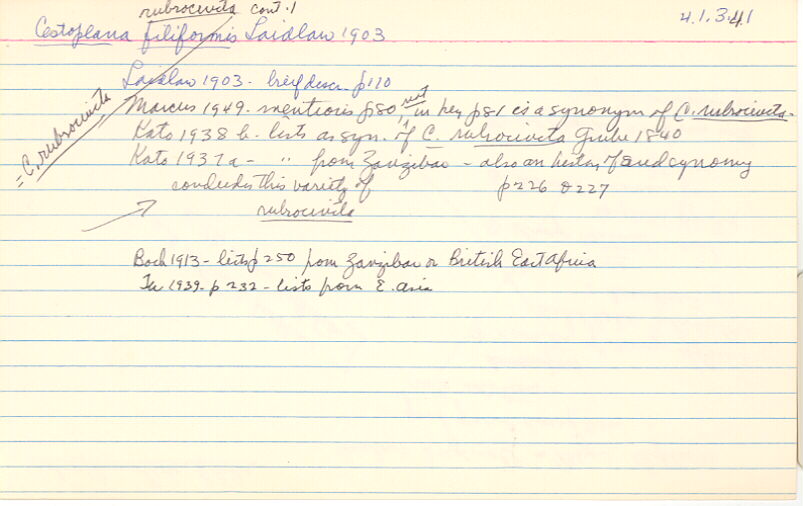 rubrocincta cont. 1
4.1.3.41
Cestoplana filiformis Laidlaw 1903
= C. rubrocincta
Laidlaw 1903 - brief descr. p110
Marcus 1949 - mentions p80, not in key p81 is a synonym of C. rubrocincta.
Kato 1938 b - lists as syn. of C. rubrocincta Grube 1840
Kato 1937a - " from Zanzibar - also an history of and synomy
concludes this variety of p226 & 227
rubrocincta
Bock 1913 - lists p250 from Zanzibar or British East Africa
1939 - p 232 - lists from E. Asia